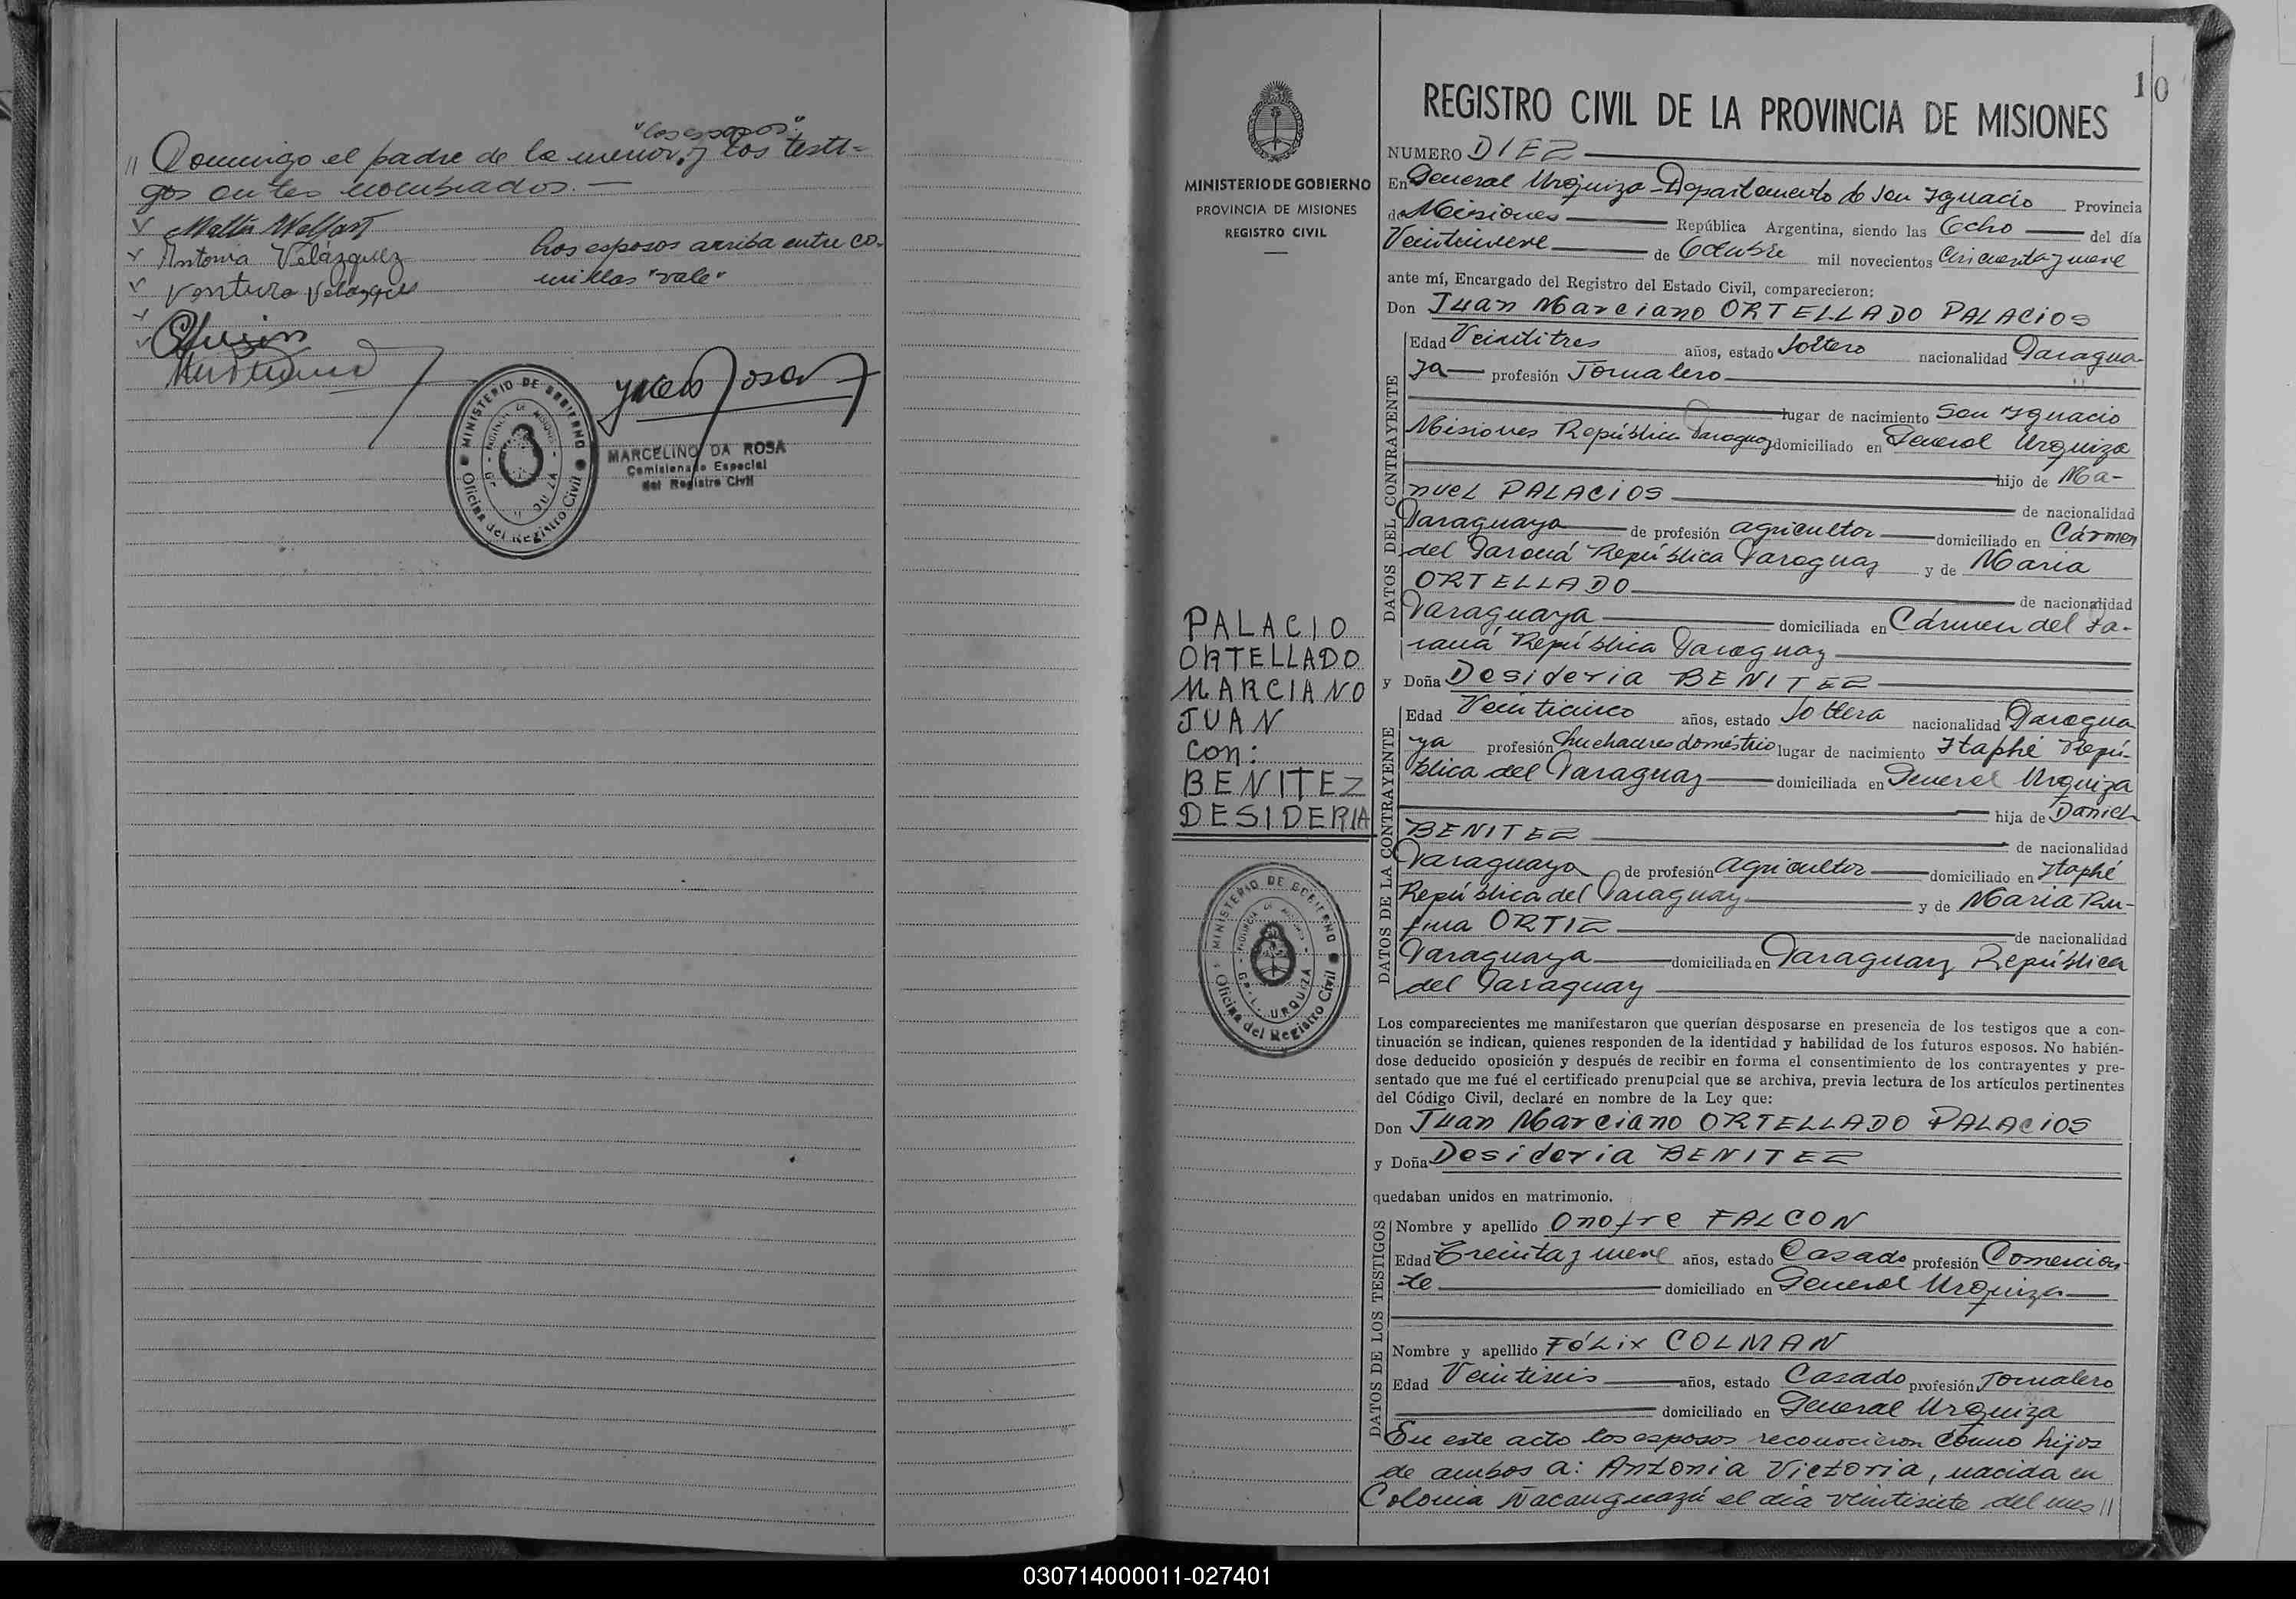 "los esposos"
// Domingo el padre de la menor, y los testi=
gos antes nombrados.—
Antonia Velázquez
Ventura Velazques
Los esposos arriba entre co-
millas "vale"
MINISTERIO DE GOBIERNO
Oficina del Registro Civil
MARCELINO DA ROSA
Comisionado Especial
del Registro Civil
10
MINISTERIO DE GOBIERNO
PROVINCIA DE MISIONES
REGISTRO CIVIL
PALACIO
ORTELLADO
MARCIANO
JUAN
con:
BENITEZ
DESIDERIA
MINISTERIO DE GOBIERNO
GRL. URQUIZA
Oficina del Registro Civil
REGISTRO CIVIL DE LA PROVINCIA DE MISIONES
NUMERO DIEZ
En General Urquiza - Departamento de San Ignacio Provincia
de Misiones República Argentina, siendo las Ocho del día
Veintinueve de Octubre mil novecientos Cincuenta y nueve
ante mí, Encargado del Registro del Estado Civil, comparecieron:
Don Juan Marciano ORTELLADO PALACIOS
DATOS DEL CONTRAYENTE
Edad Veintitres años, estado Soltero nacionalidad Paragua-
ya profesión Jornalero
lugar de nacimiento San Ignacio
Misiones República Paraguay domiciliado en General Urquiza
hijo de Ma-
nuel PALACIOS de nacionalidad
Paraguaya de profesión agricultor domiciliado en Cármen
del Paraná República Paraguay y de Maria
ORTELLADO de nacionalidad
Paraguaya domiciliada en Cármen del Pa-
raná República Paraguay
y Doña Desideria BENITEZ
DATOS DE LA CONTRAYENTE
Edad Veinticinco años, estado Soltera nacionalidad Paragua
ya profesión quehaceres doméstico lugar de nacimiento Itaphé Repú-
blica del Paraguay domiciliada en General Urquiza
hija de Daniel
BENITEZ de nacionalidad
Paraguaya de profesión agricultor domiciliado en Itaphé
República del Paraguay y de Maria Ru-
fina ORTIZ de nacionalidad
Paraguaya domiciliada en Paraguary República
del Paraguay
Los comparecientes me manifestaron que querían desposarse en presencia de los testigos que a con-
tinuación se indican, quienes responden de la identidad y habilidad de los futuros esposos. No habién-
dose deducido oposición y después de recibir en forma el consentimiento de los contrayentes y pre-
sentado que me fué el certificado prenupcial que se archiva, previa lectura de los artículos pertinentes
del Código Civil, declaré en nombre de la Ley que:
Don Juan Marciano ORTELLADO PALACIOS
y Doña Desideria BENITEZ
quedaban unidos en matrimonio.
DATOS DE LOS TESTIGOS
Nombre y apellido Onofre FALCON
Edad Treinta y nueve años, estado Casado profesión Comercian-
te domiciliado en General Urquiza
Nombre y apellido FÓLix COLMAN
Edad Veintiseis años, estado Casado profesión Jornalero
domiciliado en General Urquiza
En este acto los esposos reconocieron cómo hijos
de ambos a: Antonia Victoria, nacida en
Colonia Ñacanguazú el día veintisiete del mes //
030714000011-027401